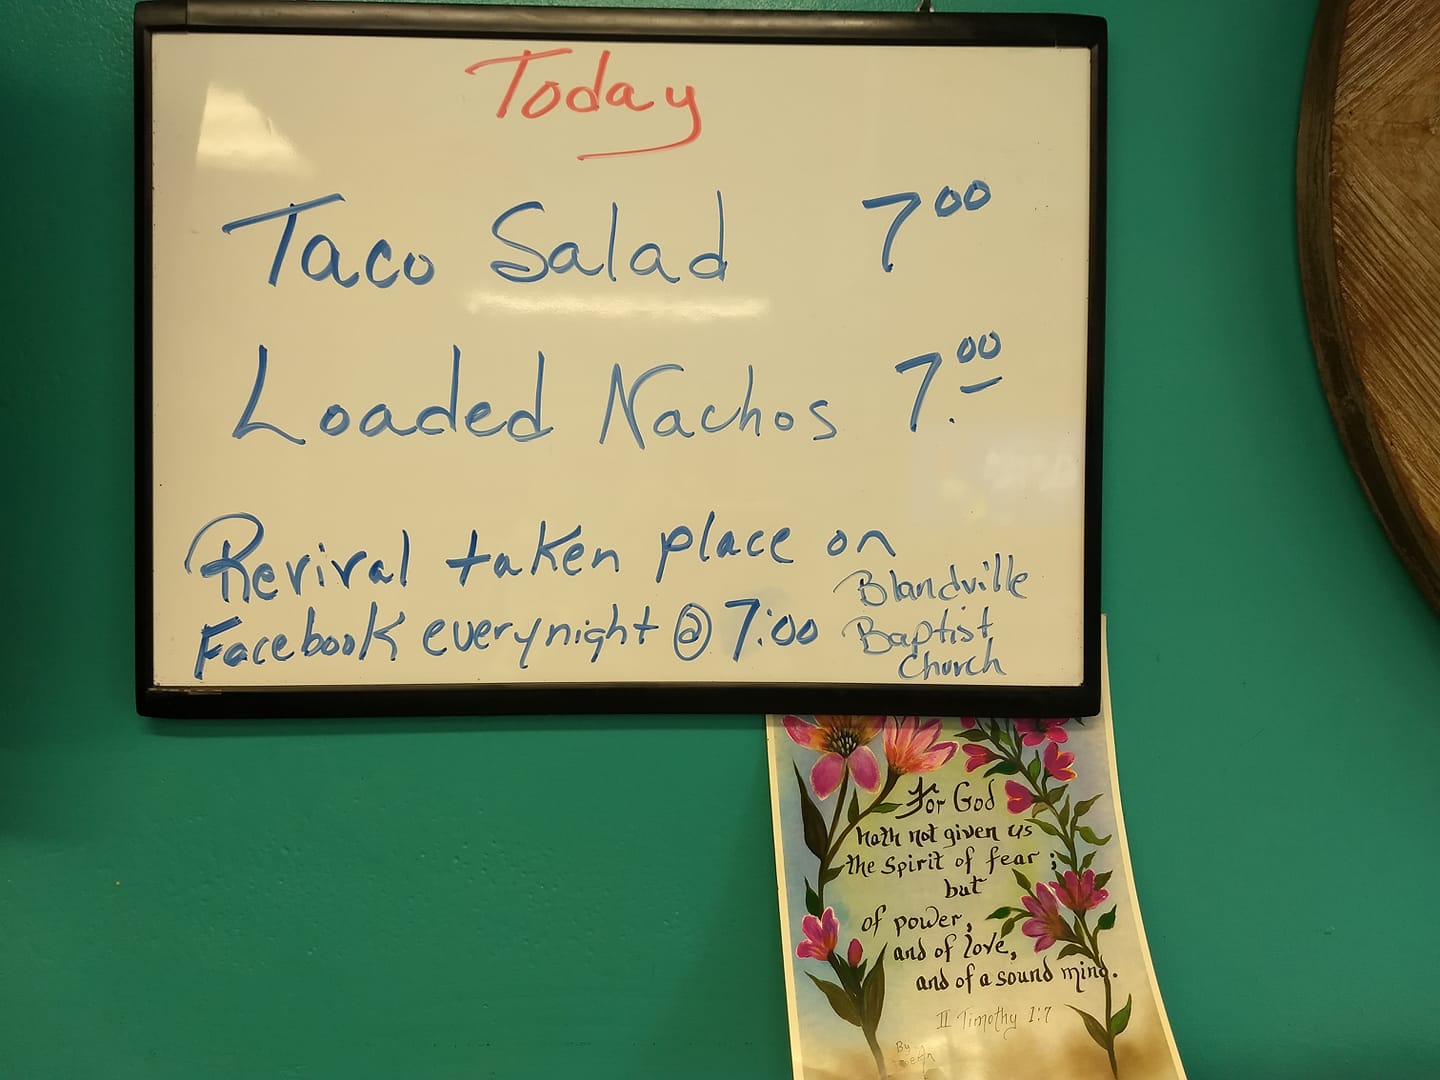 Today
Taco Salad 7 00
Loaded Nachos 7.00
Revival taken place on
Facebook everynight @ 7:00
Blandville
Baptist
Church
For God
hath not given us
the spirit of fear;
but
of power,
and of love,
and of a sound mind.
II Timothy 1:7
By